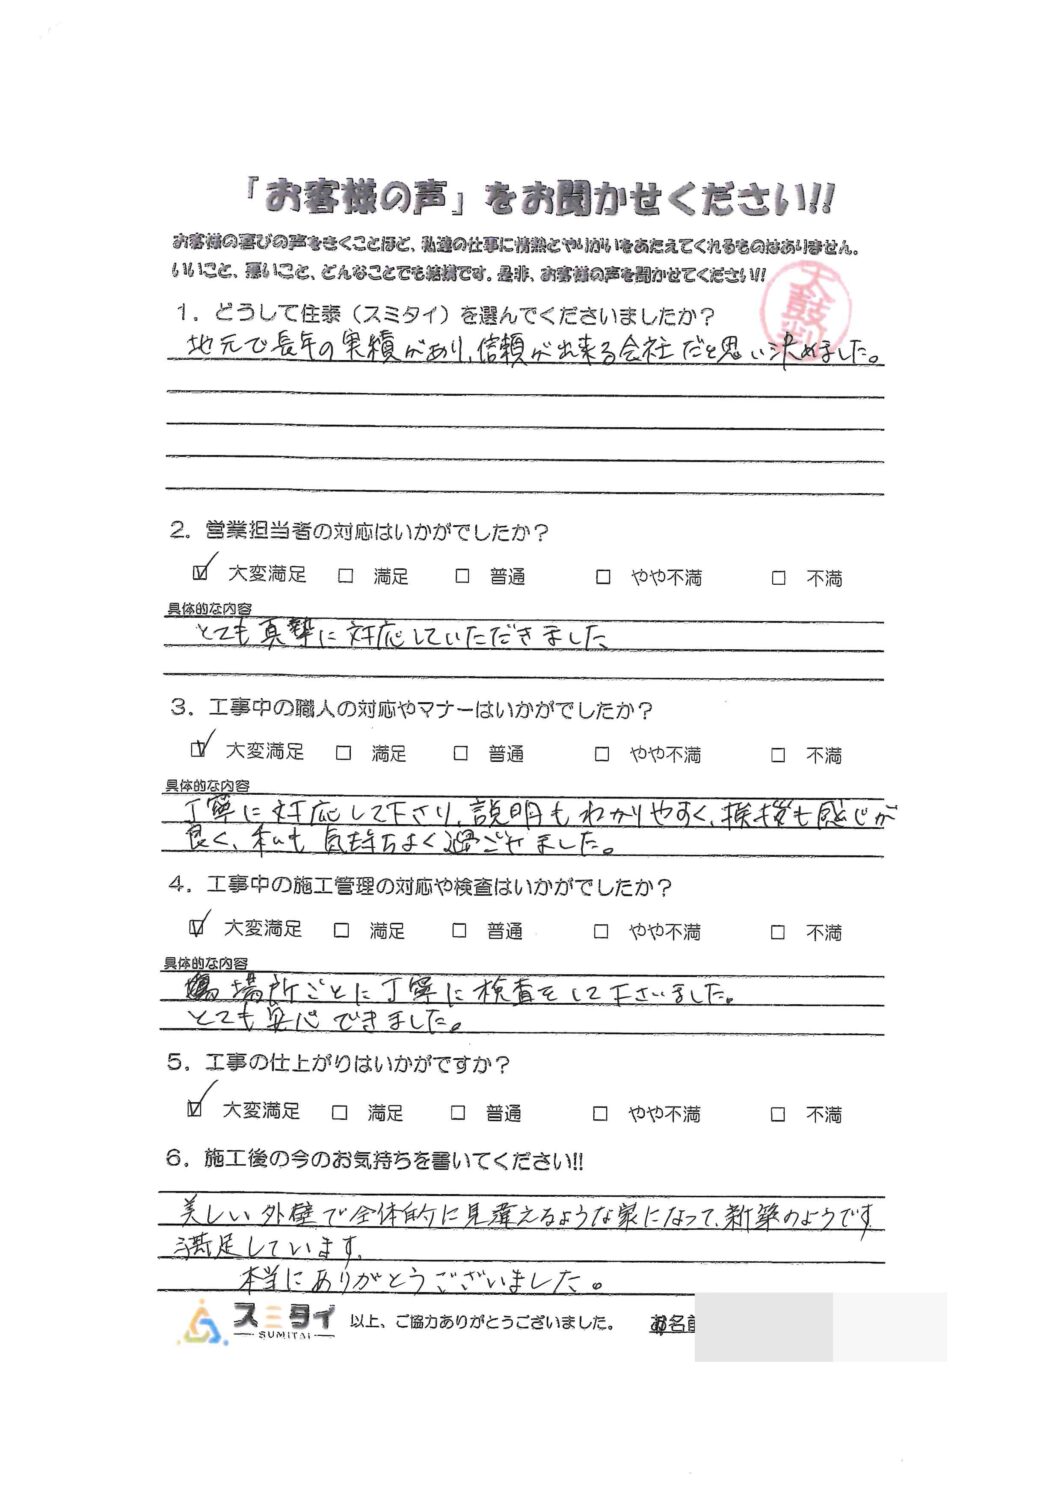 「お客様の声」をお聞かせください!!
お客様の喜びの声をきくことほど、私達の仕事に情熱とやりがいをあたえてくれるものはありません。
いいこと、悪いこと、どんなことでも結構です。是非、お客様の声を聞かせてください!!
太鼓判
1. どうして住泰（スミタイ）を選んでくださいましたか？
地元で長年の実績があり、信頼が出来る会社だと思い決めました。
2. 営業担当者の対応はいかがでしたか？
☑ 大変満足 □ 満足 □ 普通 □ やや不満 □ 不満
具体的な内容
とても真摯に対応していただきました
3. 工事中の職人の対応やマナーはいかがでしたか？
☑ 大変満足 □ 満足 □ 普通 □ やや不満 □ 不満
具体的な内容
丁寧に対応して下さり、説明もわかりやすく、挨拶も感じが
良く、私も気持ちよく過ごせました。
4. 工事中の施工管理の対応や検査はいかがでしたか？
☑ 大変満足 □ 満足 □ 普通 □ やや不満 □ 不満
具体的な内容
場所ごとに丁寧に検査をして下さいました。
とても安心できました。
5. 工事の仕上がりはいかがですか？
☑ 大変満足 □ 満足 □ 普通 □ やや不満 □ 不満
6. 施工後の今のお気持ちを書いてください!!
美しい外壁で全体的に見違えるような家になって、新築のようです
満足しています。
本当にありがとうございました。
スミタイ
SUMITAI
以上、ご協力ありがとうございました。 お名前